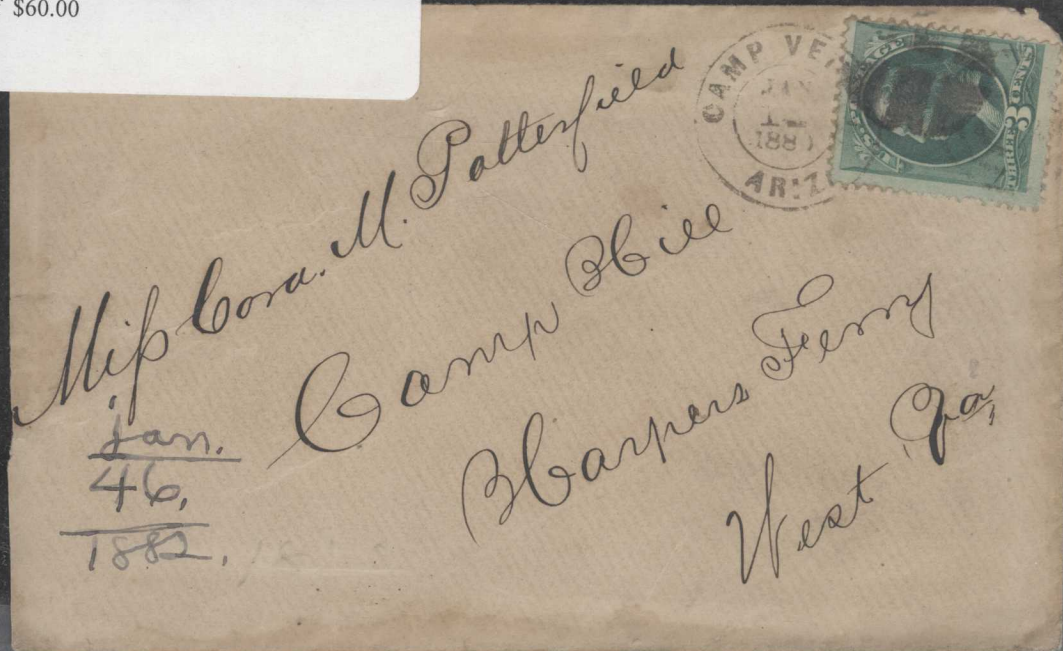 $60.00
CAMP VE
JAN
188
ARIZ
THREE 3 CENTS
Miss Cora. M. Potterfield
Camp Hill
Harpers Ferry
West Va,
Jan.
46,
1882.